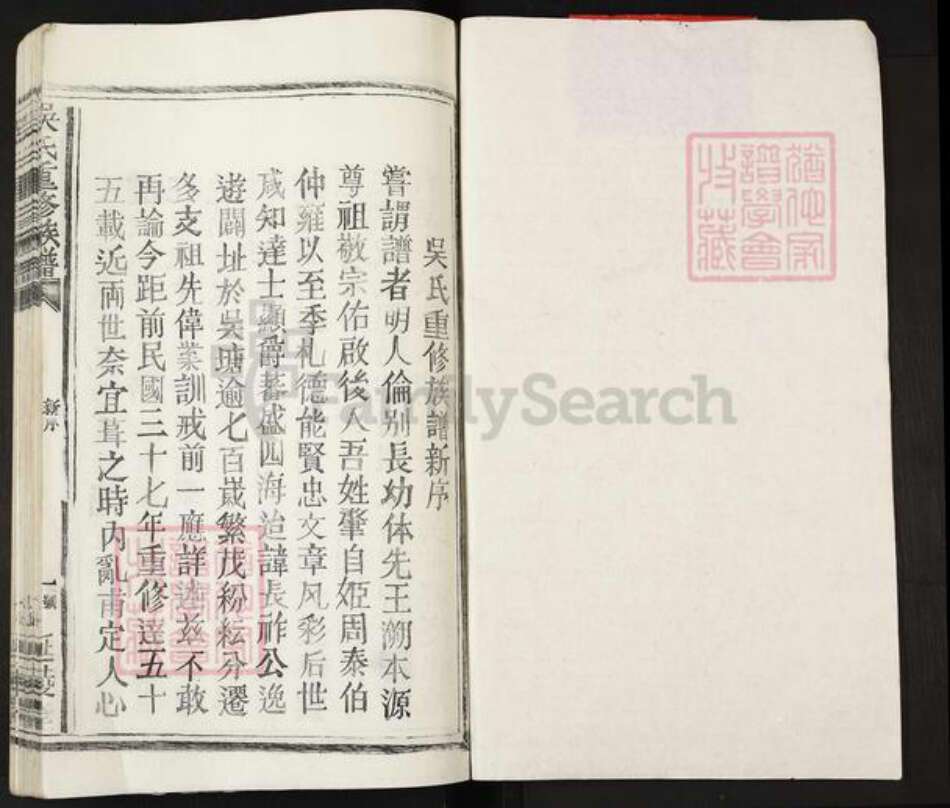 吳氏重修族譜新序
嘗謂譜者明人倫别長幼体先王溯本源
尊祖敬宗佑啟後人吾姓肇自姬周泰伯
仲雍以至季札德能賢忠文章风彩后世
咸知達士顯爵蕃盛四海迨諱長祚公逸
遊闢址於吳塘逾七百嵗繁茂紛紜分遷
多支祖先偉業訓戒前一應詳述兹不敢
再論今距前民國三十七年重修逹五十
五載近両世奈宜葺之時内亂甫定人心
吳氏重修族譜
新序
一
猶他家
譜學會
收藏
FamilySearch